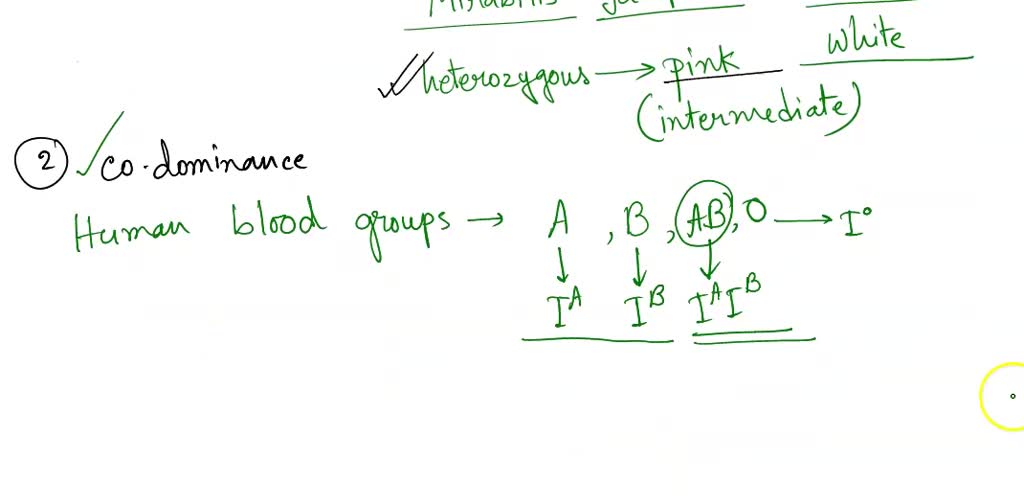 white
heterozygous → pink
(intermediate)
2 ✓ co-dominance
Human blood groups → A , B , AB , O → I°
↓ ↓ ↓
I^A I^B I^A I^B